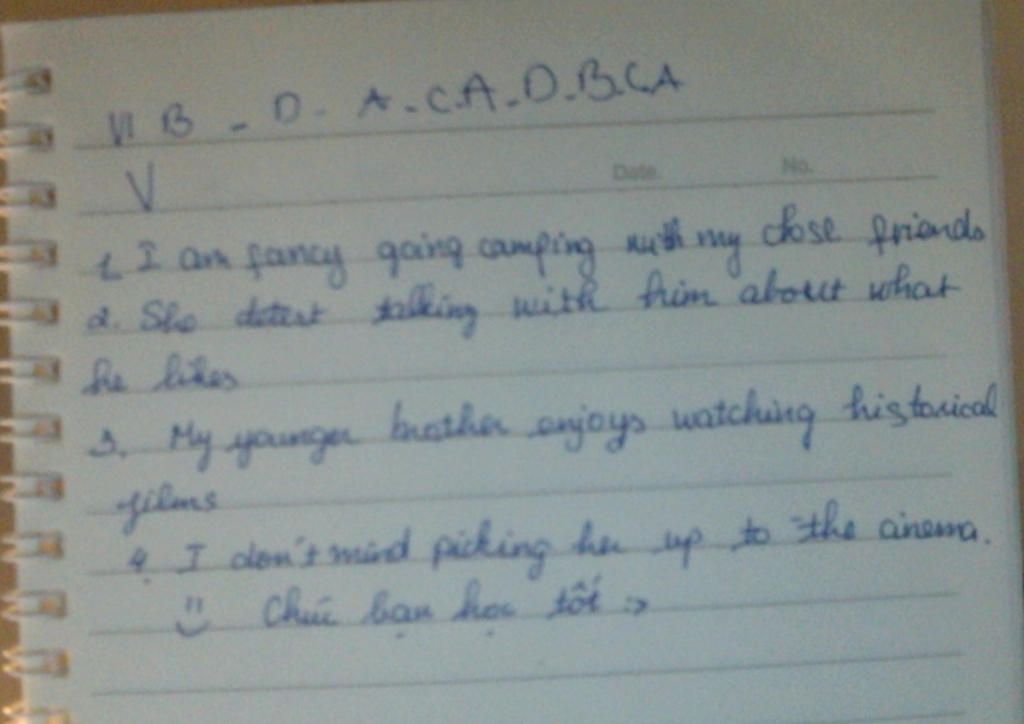 VI B - D - A - C.A - D.B.C.A
V
Date. No.
1. I am fancy going camping with my close friends
2. She detest talking with him about what
he likes
3. My younger brother enjoys watching historical
films
4. I don't mind picking her up to the cinema.
Chúc bạn học tốt :>